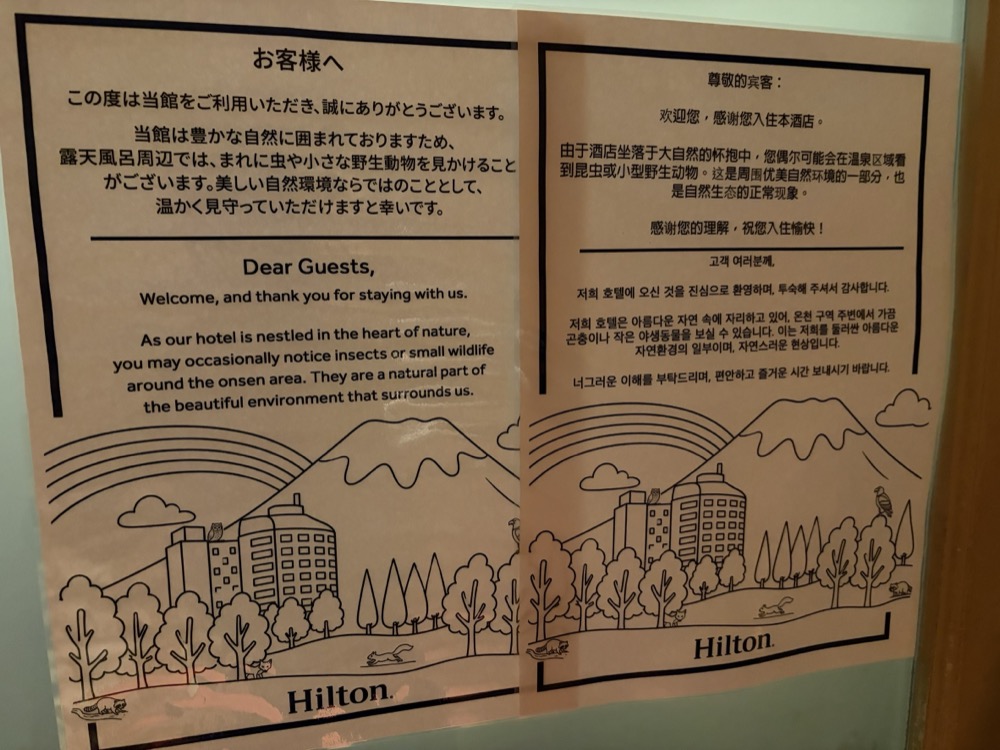 お客様へ
この度は当館をご利用いただき、誠にありがとうございます。
当館は豊かな自然に囲まれておりますため、
露天風呂周辺では、まれに虫や小さな野生動物を見かけること
がございます。美しい自然環境ならではのこととして、
温かく見守っていただけますと幸いです。
Dear Guests,
Welcome, and thank you for staying with us.
As our hotel is nestled in the heart of nature,
you may occasionally notice insects or small wildlife
around the onsen area. They are a natural part of
the beautiful environment that surrounds us.
Hilton.
尊敬的宾客：
欢迎您，感谢您入住本酒店。
由于酒店坐落于大自然的怀抱中，您偶尔可能会在温泉区域看
到昆虫或小型野生动物。这是周围优美自然环境的一部分，也
是自然生态的正常现象。
感谢您的理解，祝您入住愉快！
고객 여러분께,
저희 호텔에 오신 것을 진심으로 환영하며, 투숙해 주셔서 감사합니다.
저희 호텔은 아름다운 자연 속에 자리하고 있어, 온천 구역 주변에서 가끔
곤충이나 작은 야생동물을 보실 수 있습니다. 이는 저희를 둘러싼 아름다운
자연환경의 일부이며, 자연스러운 현상입니다.
너그러운 이해를 부탁드리며, 편안하고 즐거운 시간 보내시기 바랍니다.
Hilton.